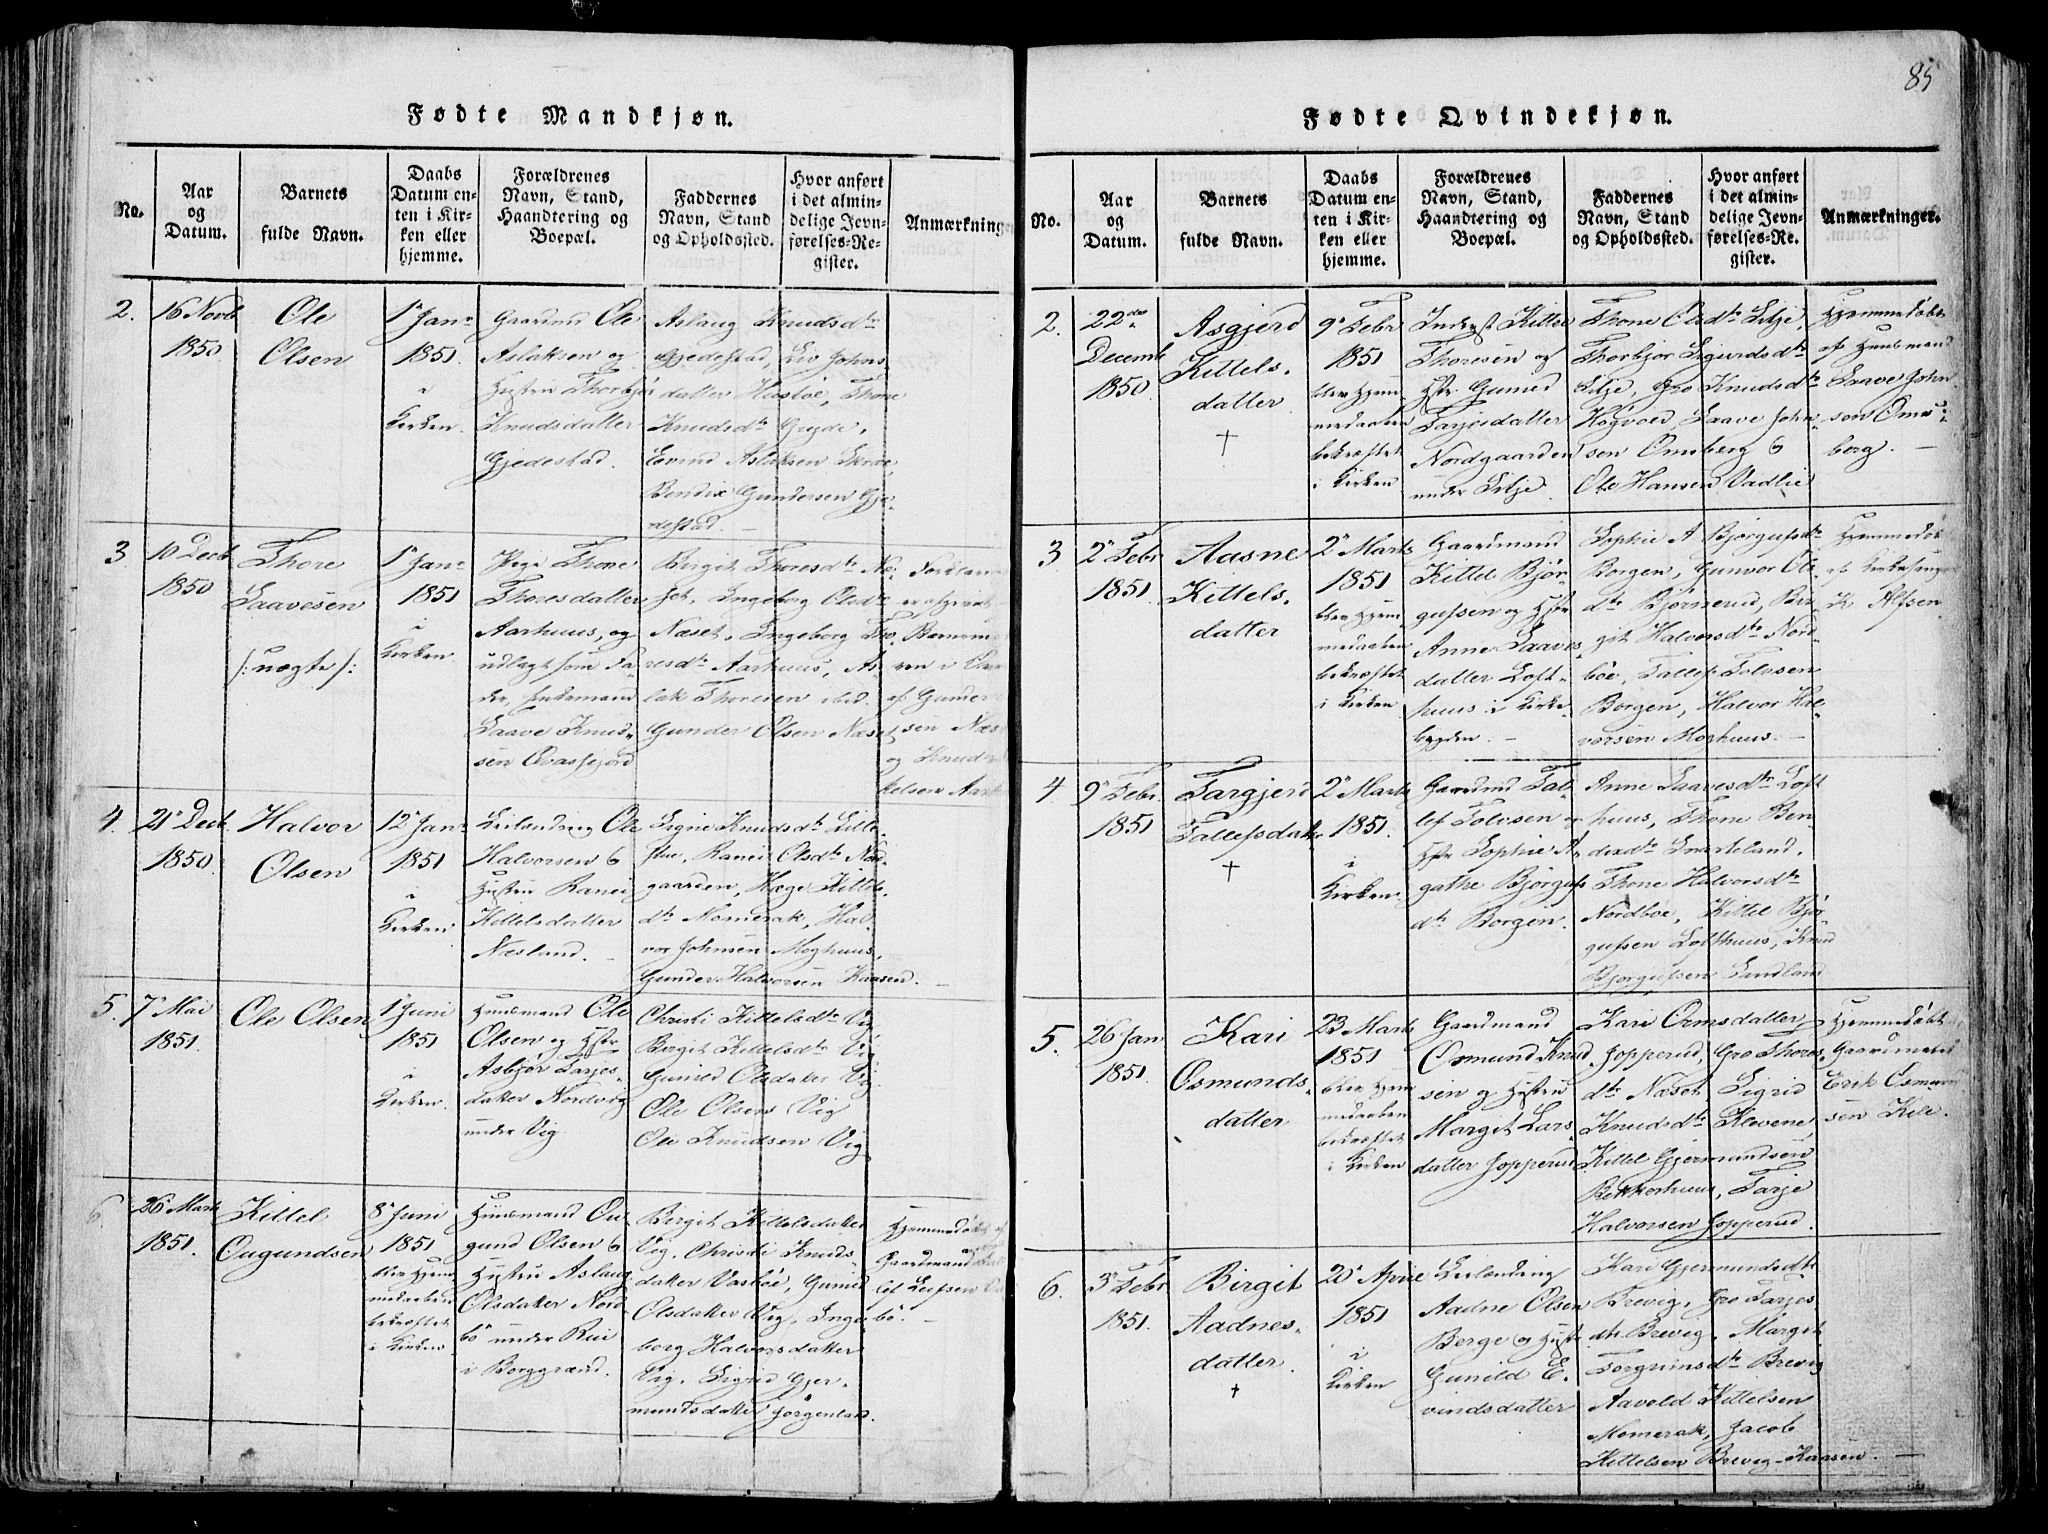 85
Fødte Mandkjøn.
No.
Aar
og
Datum.
Barnets
fulde Navn.
Daabs
Datum en-
ten i Kir-
ken eller
hjemme.
Forældrenes
Navn, Stand,
Haandtering og
Boepæl.
Faddernes
Navn, Stand
og Opholdssted.
Hvor anført
i det almin-
delige Jevn-
førelses-Re-
gister.
Anmærkning
2.
16 Novb
1850
Ole
Olsen
1 Janr
1851
i
Kirken.
Gaardmd Ole
Aslaksen og
Hustru Thorbjør
Knudsdatter
Gjedestad.
Aslaug Knudsdtr
Gjedestad, Liv Johns-
datter Hasløe, Thone
Knudsdtr
Eivind Aslaksen
Bendix Gundersen Gje-
destad.
3
10 Decb
1850
Thore
Saavesen
/: uægte :/
1 Janr
1851
i
Kirken
Pige Thone
Thoresdatter
Aarhuus, og
udlagt som Fa-
der, Enkemand
Saave Knud-
sen
Birgit Thoresdtr Næ-
set, Ingeborg Olsdtr
Næset, Ingeborg Tho-
resdtr Aarhuus, As-
lak Thoresen ibid.
Gunder Olsen Næset
af Gunder
sen Næs
og Knud
kelsen Aarh
4.
21 Decb.
1850
Halvor
Olsen
12 Janr
1851
i
Kirken
Leilænding Ole
Halvorsen &
Hustru Ranei
Kittelsdatter
Næsland.
Signe Knudsdtr Lille-
stue, Ranei Olsdtr Nor-
gaarden, Hæge Kittels-
dtr Momrak, Hal-
vor Johnsen Moghuus,
Gunder Halvorsen Kaasen.
5.
7 Mai
1851
Ole Olsen
1 Juni
1851
i
Kirken.
Huusmand Ole
Olsen og Hstr
Asbjør Tarjes-
datter Nordvig
under Vig
Christi Kittelsdtr Vig
Birgit Kittelsdtr Vig
Gunild Olsdatter Vig
Ole Olsen Vig
Ole Knudsen Vig
6
26 Marts
1851.
Kittel
Ougundsen
8 Juni
1851
blev Hjem-
medaaben
bekræftet
i Kirken
Huusmand Ou-
gund Olsen &
Hustru Aslaug
Olsdatter Nord
bø under Rui
i Borggrænd.
Birgit Kittelsdatter
Vig, Christi Knuds-
datter Vasbøe, Gunild
Olsdatter Vig, Inge-
borg Halvorsdatter
Vig, Sigrid Gjer-
mundsdatter Jørgenland.
Hjemmedøbt af
Gaardmand
lef Leifsen
bø.
Fødte Qvindekjøn.
No.
Aar
og
Datum.
Barnets
fulde Navn.
Daabs
Datum en-
ten i Kir-
ken eller
hjemme.
Forældrenes
Navn, Stand,
Haandtering og
Boepæl.
Faddernes
Navn, Stand
og Opholdssted.
Hvor anført
i det almin-
delige Jevn-
førelses-Re-
gister.
Anmærkninger.
2.
22de
Decemb
1850
Asgjerd
Kittels-
datter
†
9 Febr
1851
blev Hjem-
medaaben
bekræftet
i Kirken
Inderst Kittel
Thoresen og
Hstr. Gunild
Tarjesdatter
Nordgaarden
under Litje.
Thone Olsdtr Litje,
Thorbjør Sigurdsdtr
Litje, Gro Knudsdtr
Høgvold, Saave John-
sen Omsberg &
Ole Hansen Vadlie
Hjemmedøbt
af Huusmand
Saave John
sen Oms-
berg.
3
2 Febr
1851
Aasne
Kittels-
datter
2 Marts
1851
blev Hjem-
medaaben
bekræftet
i Kirken
Gaardmand
Kittel Bjør-
gufsen og Hstr
Anne Saaves-
datter Loft-
huus i Kirke-
bygden.
Sophie A Bjørgufsdtr
Borgen, Gunvor Ols-
dtr Bjørnerud, Bir-
git Halvorsdtr Nord-
bøe, Tallef Tolvsen
Borgen, Halvor Hal-
vorsen Moghuus.
Hjemmedøbt
af Kirkesanger
K. Alfsen
4
9 Febr.
1851
Targjerd
Tallefsdatter
†
2 Marts
1851.
i
Kirken
Gaardmd Tal-
lef Tolvsen og
Hstr Sophie A-
gathe Bjørgufs
dtr Borgen.
Anne Saavesdtr Loft
huus, Thone Ben-
dixdtr Snarteland,
Thone Halvorsdtr
Nordbøe, Kittel Bjør-
gufsen Lofthuus, Knud
Bjørgufsen Sundland
5.
26 Jan
1851
Kari
Osmunds-
datter
23 Marts
1851
blev Hjem-
medaaben
bekræftet
i Kirken
Gaardmand
Osmund Knud
sen og Hustru
Margit Lars-
datter Jopperud
Kari Ormsdatter
Jopperud, Gro Thores-
dtr Næset, Sigrid
Knudsdtr Klevene,
Kittel Gjermundsen
Bekkerhuus, Tarje
Halvorsen Jopperud.
Hjemmedøbt
Gaardmand
Erik Osmund
sen Kile.
6.
3 Febr
1851.
Birgit
Aadnes-
datter
†
20 Aprile
1851
i
Kirken
Leilænding
Aadne Olsen
Berge og Hustr
Gunild E-
vindsdatter
Kari Gjermundsdtr
Brevig, Gro Tarjes
dtr Brevig, Margit
Torgrimsdtr Brevig
Aavold Kittelsen
Momerak, Jacob
Kittelsen Brevig-Kaasen.